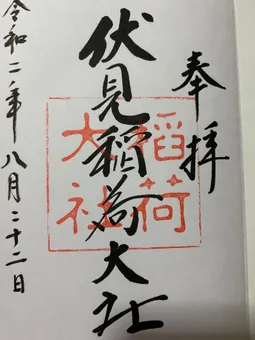 奉拝
伏見稲荷大社
稲荷大社
令和二年八月二十二日